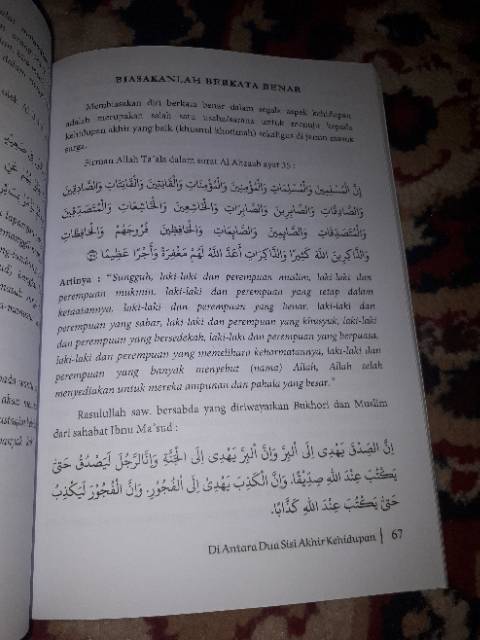 BIASAKANLAH BERKATA BENAR
Membiasakan diri berkata benar dalam segala aspek kehidupan
adalah merupakan salah satu usaha/sarana untuk menuju kepada
kehidupan akhir yang baik (khusnul khotimah) sekaligus di jamin masuk
surga.
Firman Allah Ta'ala dalam surat Al Ahzaab ayat 35 :
إِنَّ الْمُسْلِمِينَ وَالْمُسْلِمَاتِ وَالْمُؤْمِنِينَ وَالْمُؤْمِنَاتِ وَالْقَانِتِينَ وَالْقَانِتَاتِ وَالصَّادِقِينَ
وَالصَّادِقَاتِ وَالصَّابِرِينَ وَالصَّابِرَاتِ وَالْخَاشِعِينَ وَالْخَاشِعَاتِ وَالْمُتَصَدِّقِينَ
وَالْمُتَصَدِّقَاتِ وَالصَّائِمِينَ وَالصَّائِمَاتِ وَالْحَافِظِينَ فُرُوجَهُمْ وَالْحَافِظَاتِ
وَالذَّاكِرِينَ اللَّهَ كَثِيرًا وَالذَّاكِرَاتِ أَعَدَّ اللَّهُ لَهُمْ مَغْفِرَةً وَأَجْرًا عَظِيمًا
Artinya : "Sungguh, laki-laki dan perempuan muslim, laki-laki dan
perempuan mukmin, laki-laki dan perempuan yang tetap dalam
ketaatannya, laki-laki dan perempuan yang benar, laki-laki dan
perempuan yang sabar, laki-laki dan perempuan yang khusyuk, laki-laki
dan perempuan yang bersedekah, laki-laki dan perempuan yang berpuasa,
laki-laki dan perempuan yang memelihara kehormatannya, laki-laki dan
perempuan yang banyak menyebut (nama) Allah, Allah telah
menyediakan untuk mereka ampunan dan pahala yang besar."
Rasulullah saw. bersabda yang diriwayatkan Bukhori dan Muslim
dari sahabat Ibnu Ma'sud :
إِنَّ الصِّدْقَ يَهْدِى إِلَى الْبِرِّ وَإِنَّ الْبِرَّ يَهْدِى إِلَى الْجَنَّةِ وَإِنَّالرَّجُلَ لَيَصْدُقُ حَتَّى
يَكْتُبَ عِنْدَ اللَّهِ صِدِّيْقًا. وَإِنَّ الْكَذِبَ يَهْدِىْ إِلَى الْفُجُوْرِ. وَإِنَّ الْفُجُوْرَ لَيَكْذِبُ
حَتَّى يَكْتُبَ عِنْدَ اللَّهِ كَذَّابًا.
Di Antara Dua Sisi Akhir Kehidupan | 67